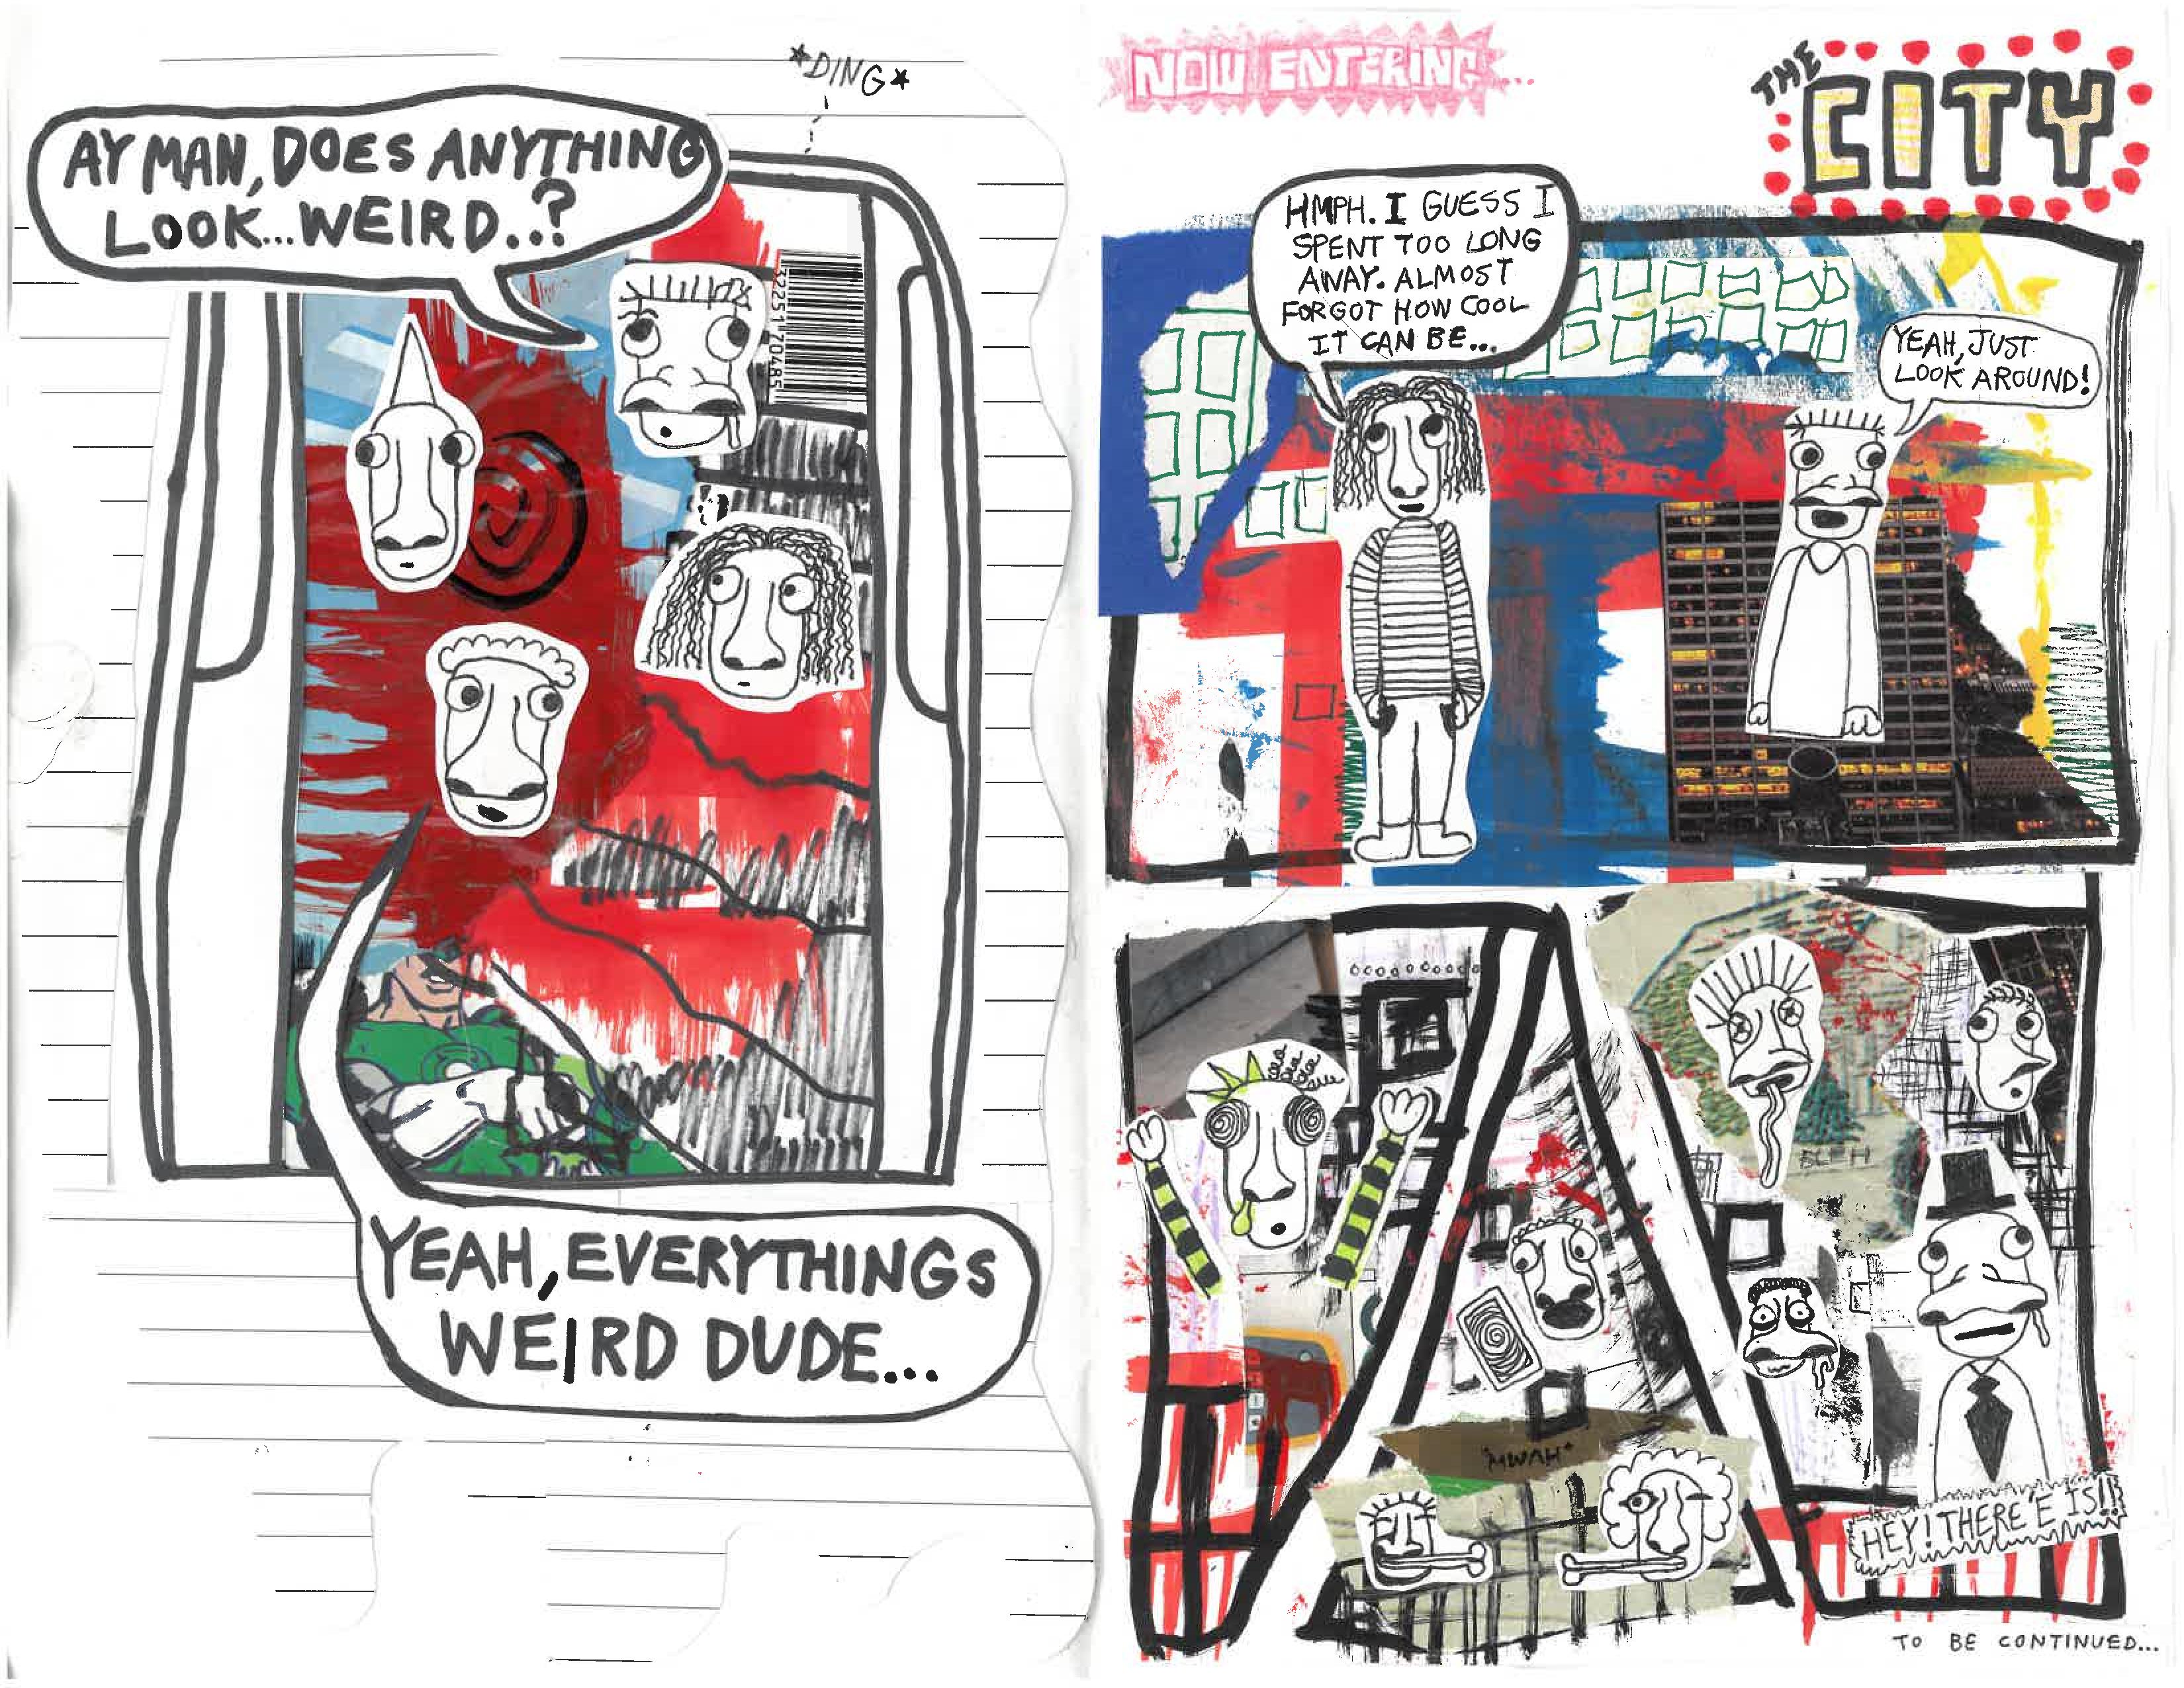 *DING*
AY MAN, DOES ANYTHING
LOOK...WEIRD..?
32251 70485
YEAH, EVERYTHINGS
WEIRD DUDE...
NOW ENTERING...
THE
CITY
HMPH. I GUESS I
SPENT TOO LONG
AWAY. ALMOST
FORGOT HOW COOL
IT CAN BE...
YEAH, JUST
LOOK AROUND!
BLEH
*MWAH*
HEY! THERE'E IS!!
TO BE CONTINUED...